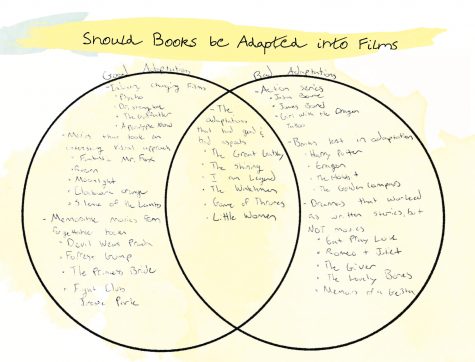 Should Books be Adapted into Films
Good Adaptation
- Industry changing Films
• Psycho
• Dr. strangelove
• The Godfather
• Apocalypse Now
• Movies that took an
interesting visual approach
• Fantastic Mr. Fox
• Moonlight
• Clockwork orange
• Silence of the Lambs
- Memorable movies from
forgettable books
• Devil Wears Prada
• Forrest Gump
• The Princess Bride
• Fight Club
• Jurassic Park
- The
adaptations
that had good &
bad aspects
• The Great Gatsby
• The Shining
• I am Legend
• The Watchmen
• Game of Thrones
• Little Women
Bad Adaptations
- Action series
• Jason Borne
• James Bond
• Girl with the Dragon
Tattoo
- Books lost in adaptation
• Harry Potter
• Eragon
• The Hobbit
• The Golden Compass
- Dramas that worked
as written stories, but
NOT movies
• Eat Pray Love
• Romeo + Juliet
• The Giver
• The Lovely Bones
• Memoirs of a Geisha